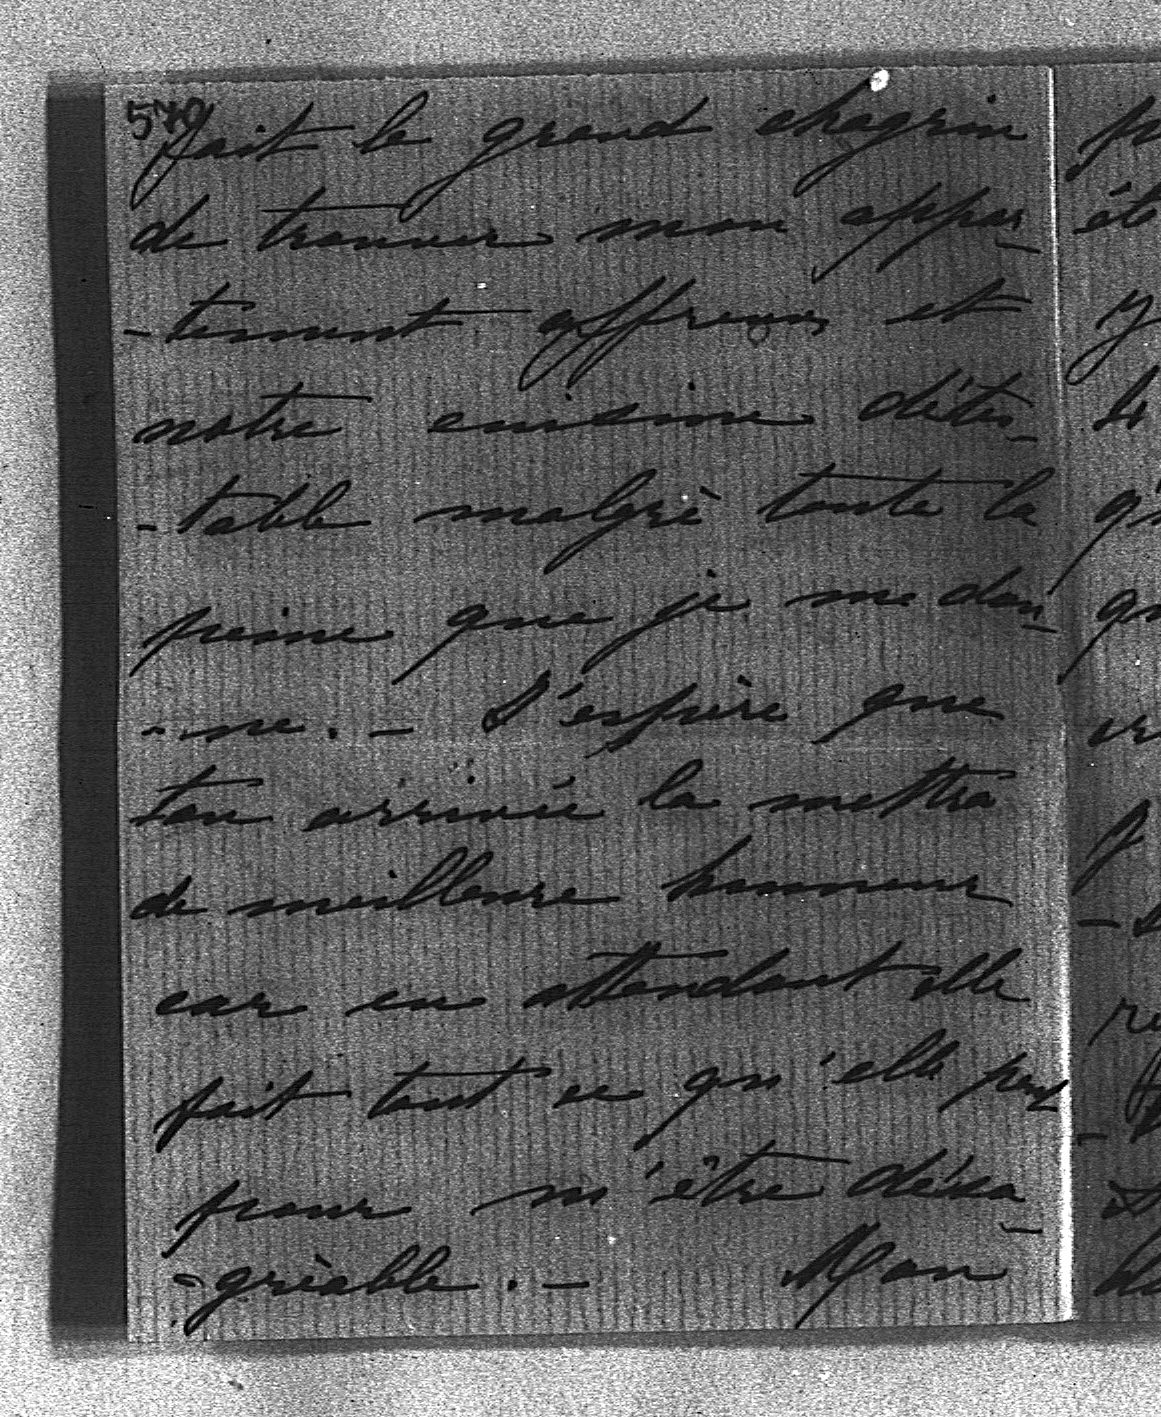 579
fait le grand chagrin
de trouver mon appar-
-tement affreux et
notre cuisine détes-
-table malgré toute la
peine que je me don-
-ne. - J'espère que
ton arrivée la mettra
de meilleure humeur
car en attendant elle
fait tout ce qu'elle peut
pour m'être désa-
-gréable. - Mon